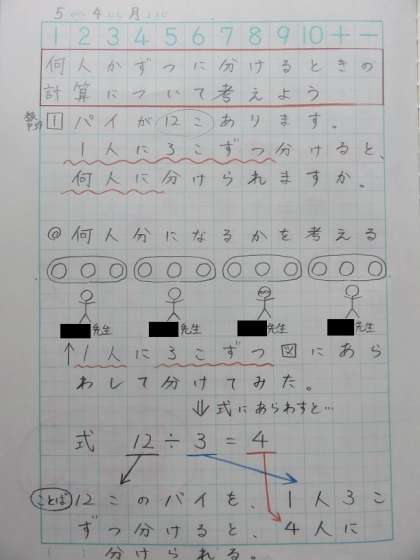 5 4 月
1 2 3 4 5 6 7 8 9 10 + −
何人かずつに分けるときの
計算について考えよう
1 パイが12こあります。
1人に3こずつ分けると、
何人に分けられますか。
@ 何人分になるかを考える
先生 先生 先生 先生
↑1人に3こずつ図にあら
わして分けてみた。
⇓ 式にあらわすと…
式 12÷3=4
ことば 12このパイを、1人3こ
ずつ分けると、4人に
分けられる。